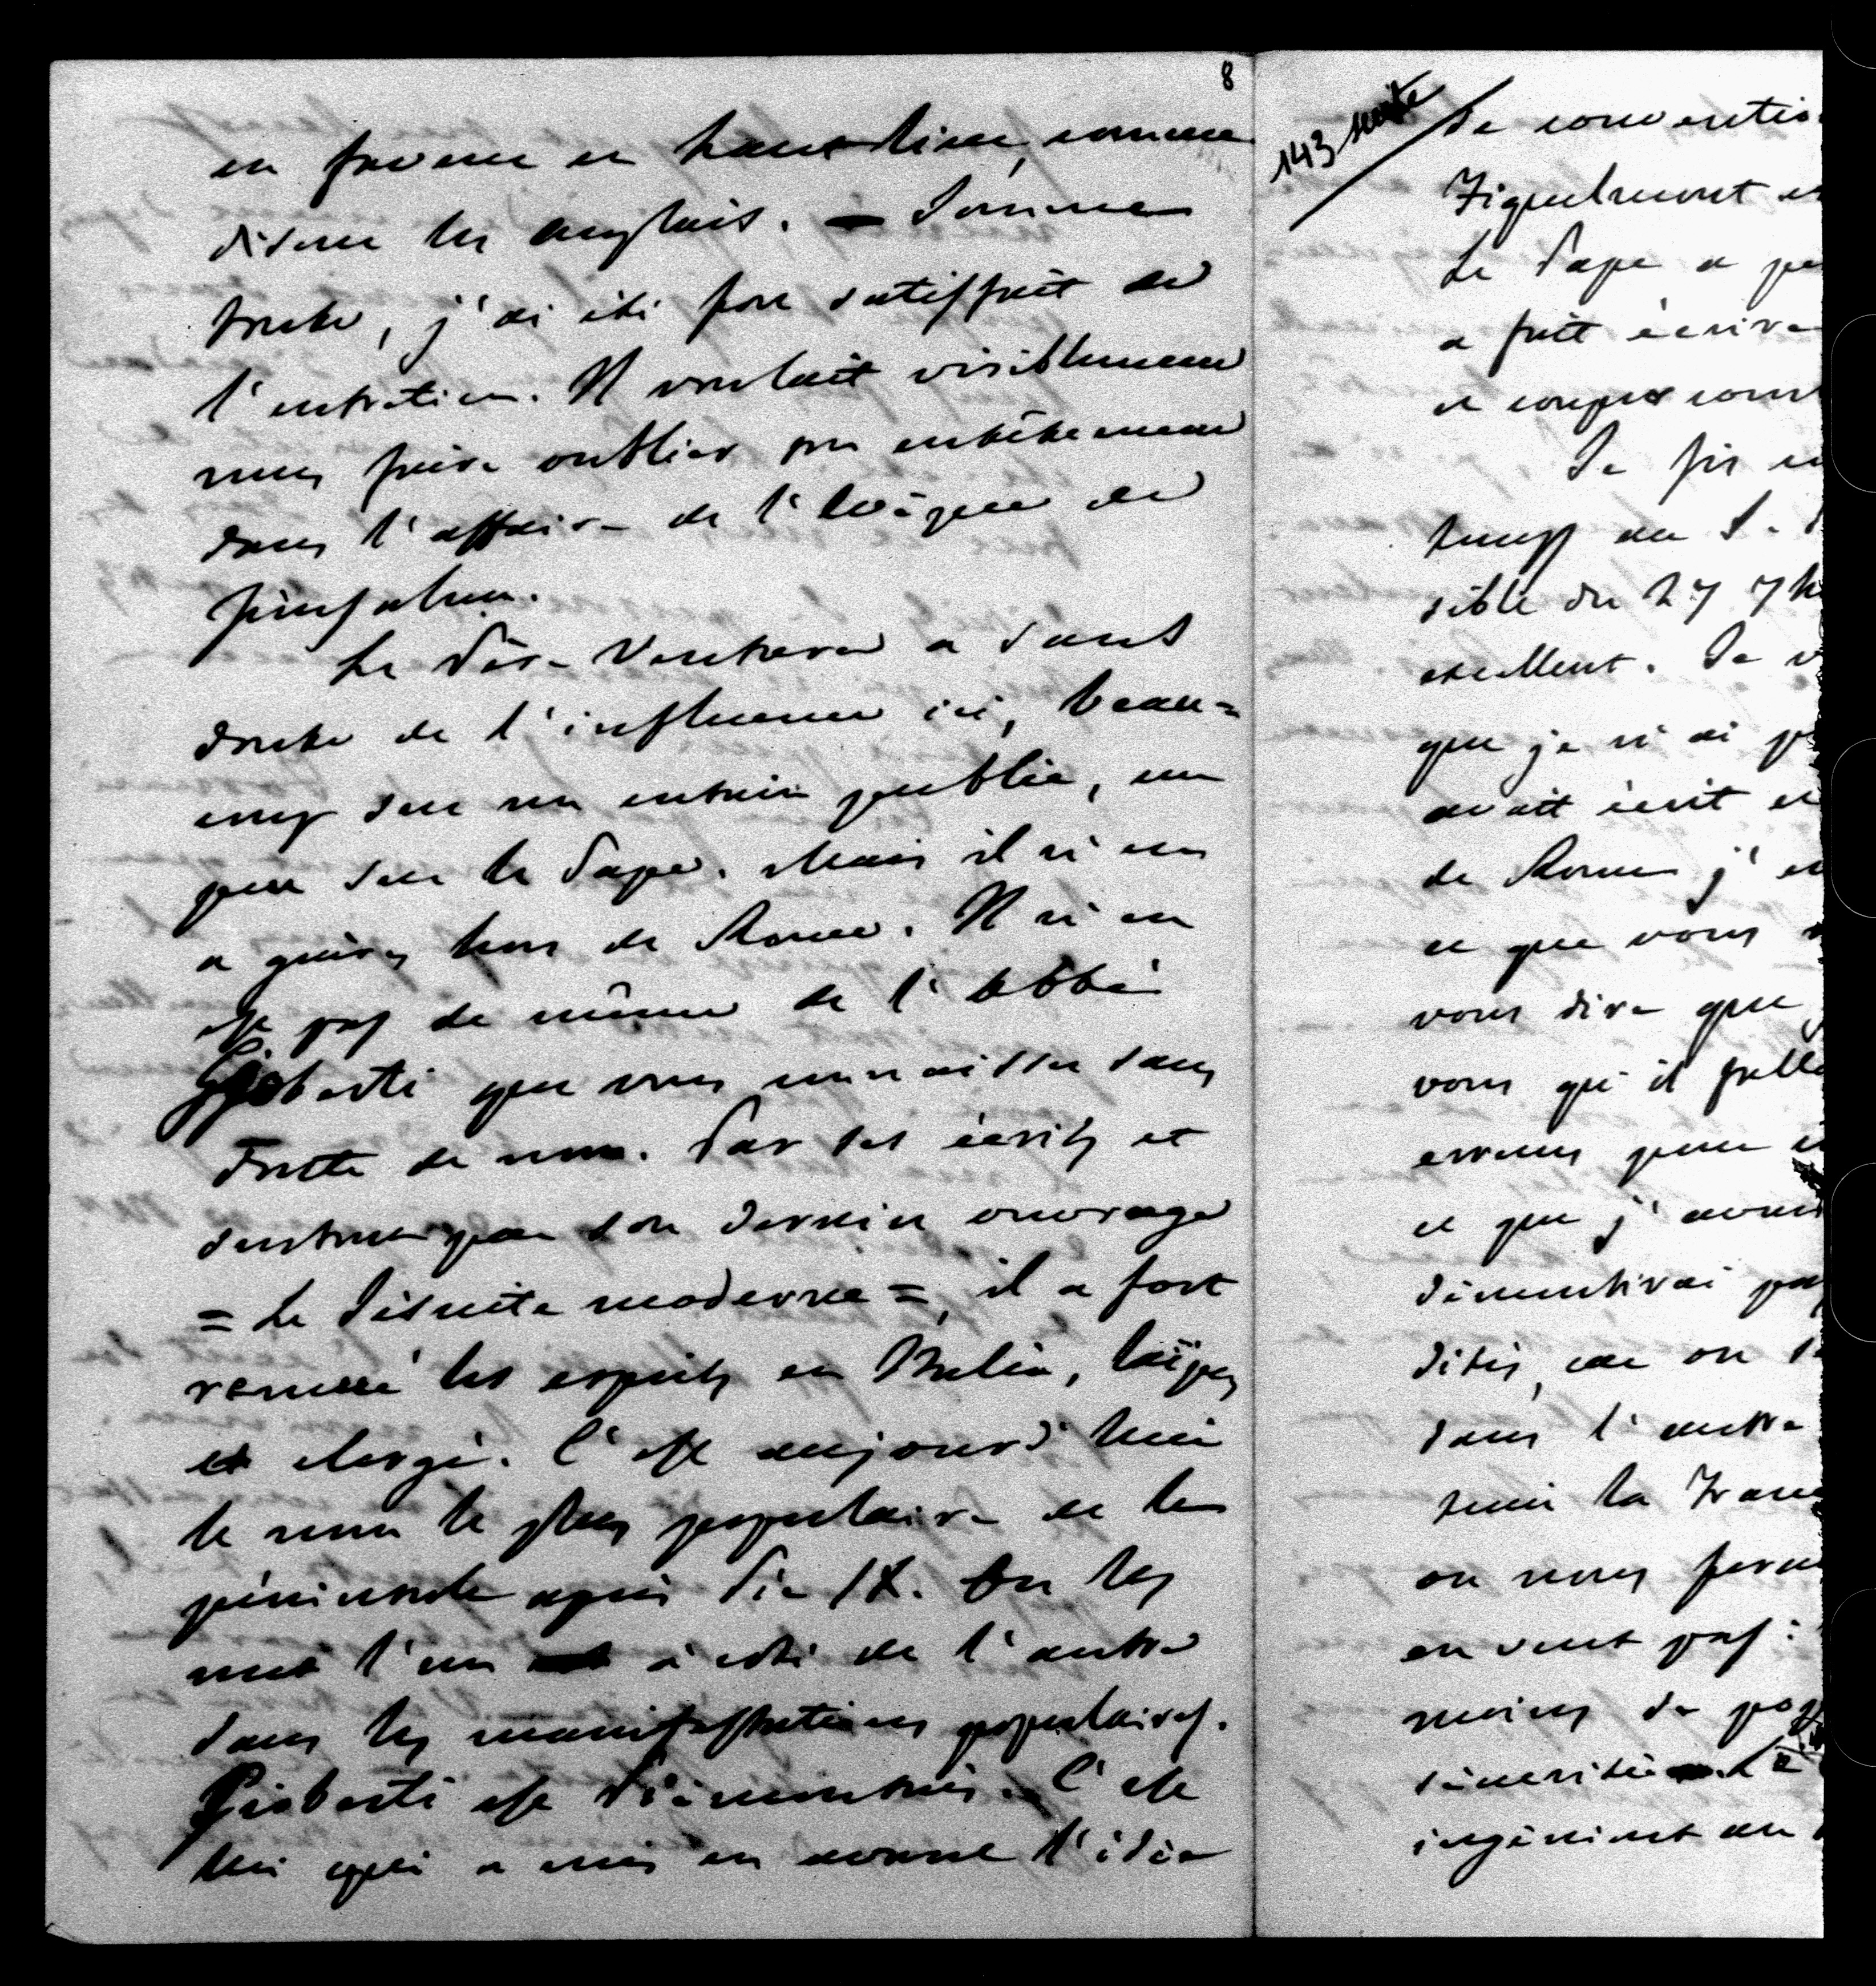 8
en faveur en haut lieu, comme
disent les anglais. — Somme
toute, j'ai été fort satisfait de
l'entretien. Il voulait visiblement
nous faire oublier son entêtement
dans l'affaire de l'évêque de
Jérusalem.
Le Père Ventura a sans
doute de l'influence ici, beau=
coup sur un certain public, un
peu sur le Pape. Mais il n'en
a guères hors de Rome. Il n'en
est pas de même de l'abbé
Gioberti que vous connaissez sans
doute de nom. Par ses écrits et
surtout par son dernier ouvrage
= Le Jésuite moderne =, il a fort
remué les esprits en Italie, laïques
et clergé. C'est aujourd'hui
le nom le plus populaire de la
péninsule après Pie IX. On les
met l'un à côté de l'autre
dans les manifestations populaires.
Gioberti est Piémontais. C'est
lui qui a mis en avant l'idée
143 suite
de convention
Fiquelmont et
Le Pape a
a fait écrire
et
Je fis
temps au S.
sible du 27 7b
excellent. Je
que je n'ai
avait écrit
de Rome j'
ce que vous
vous dire que
vous qu'il
erreurs pour
ce que j'avais
démentirai pas
dites, car on
dans l'autre
la Franc
on nous
en veut pas :
moins de
sincérité. Le
ingénient au